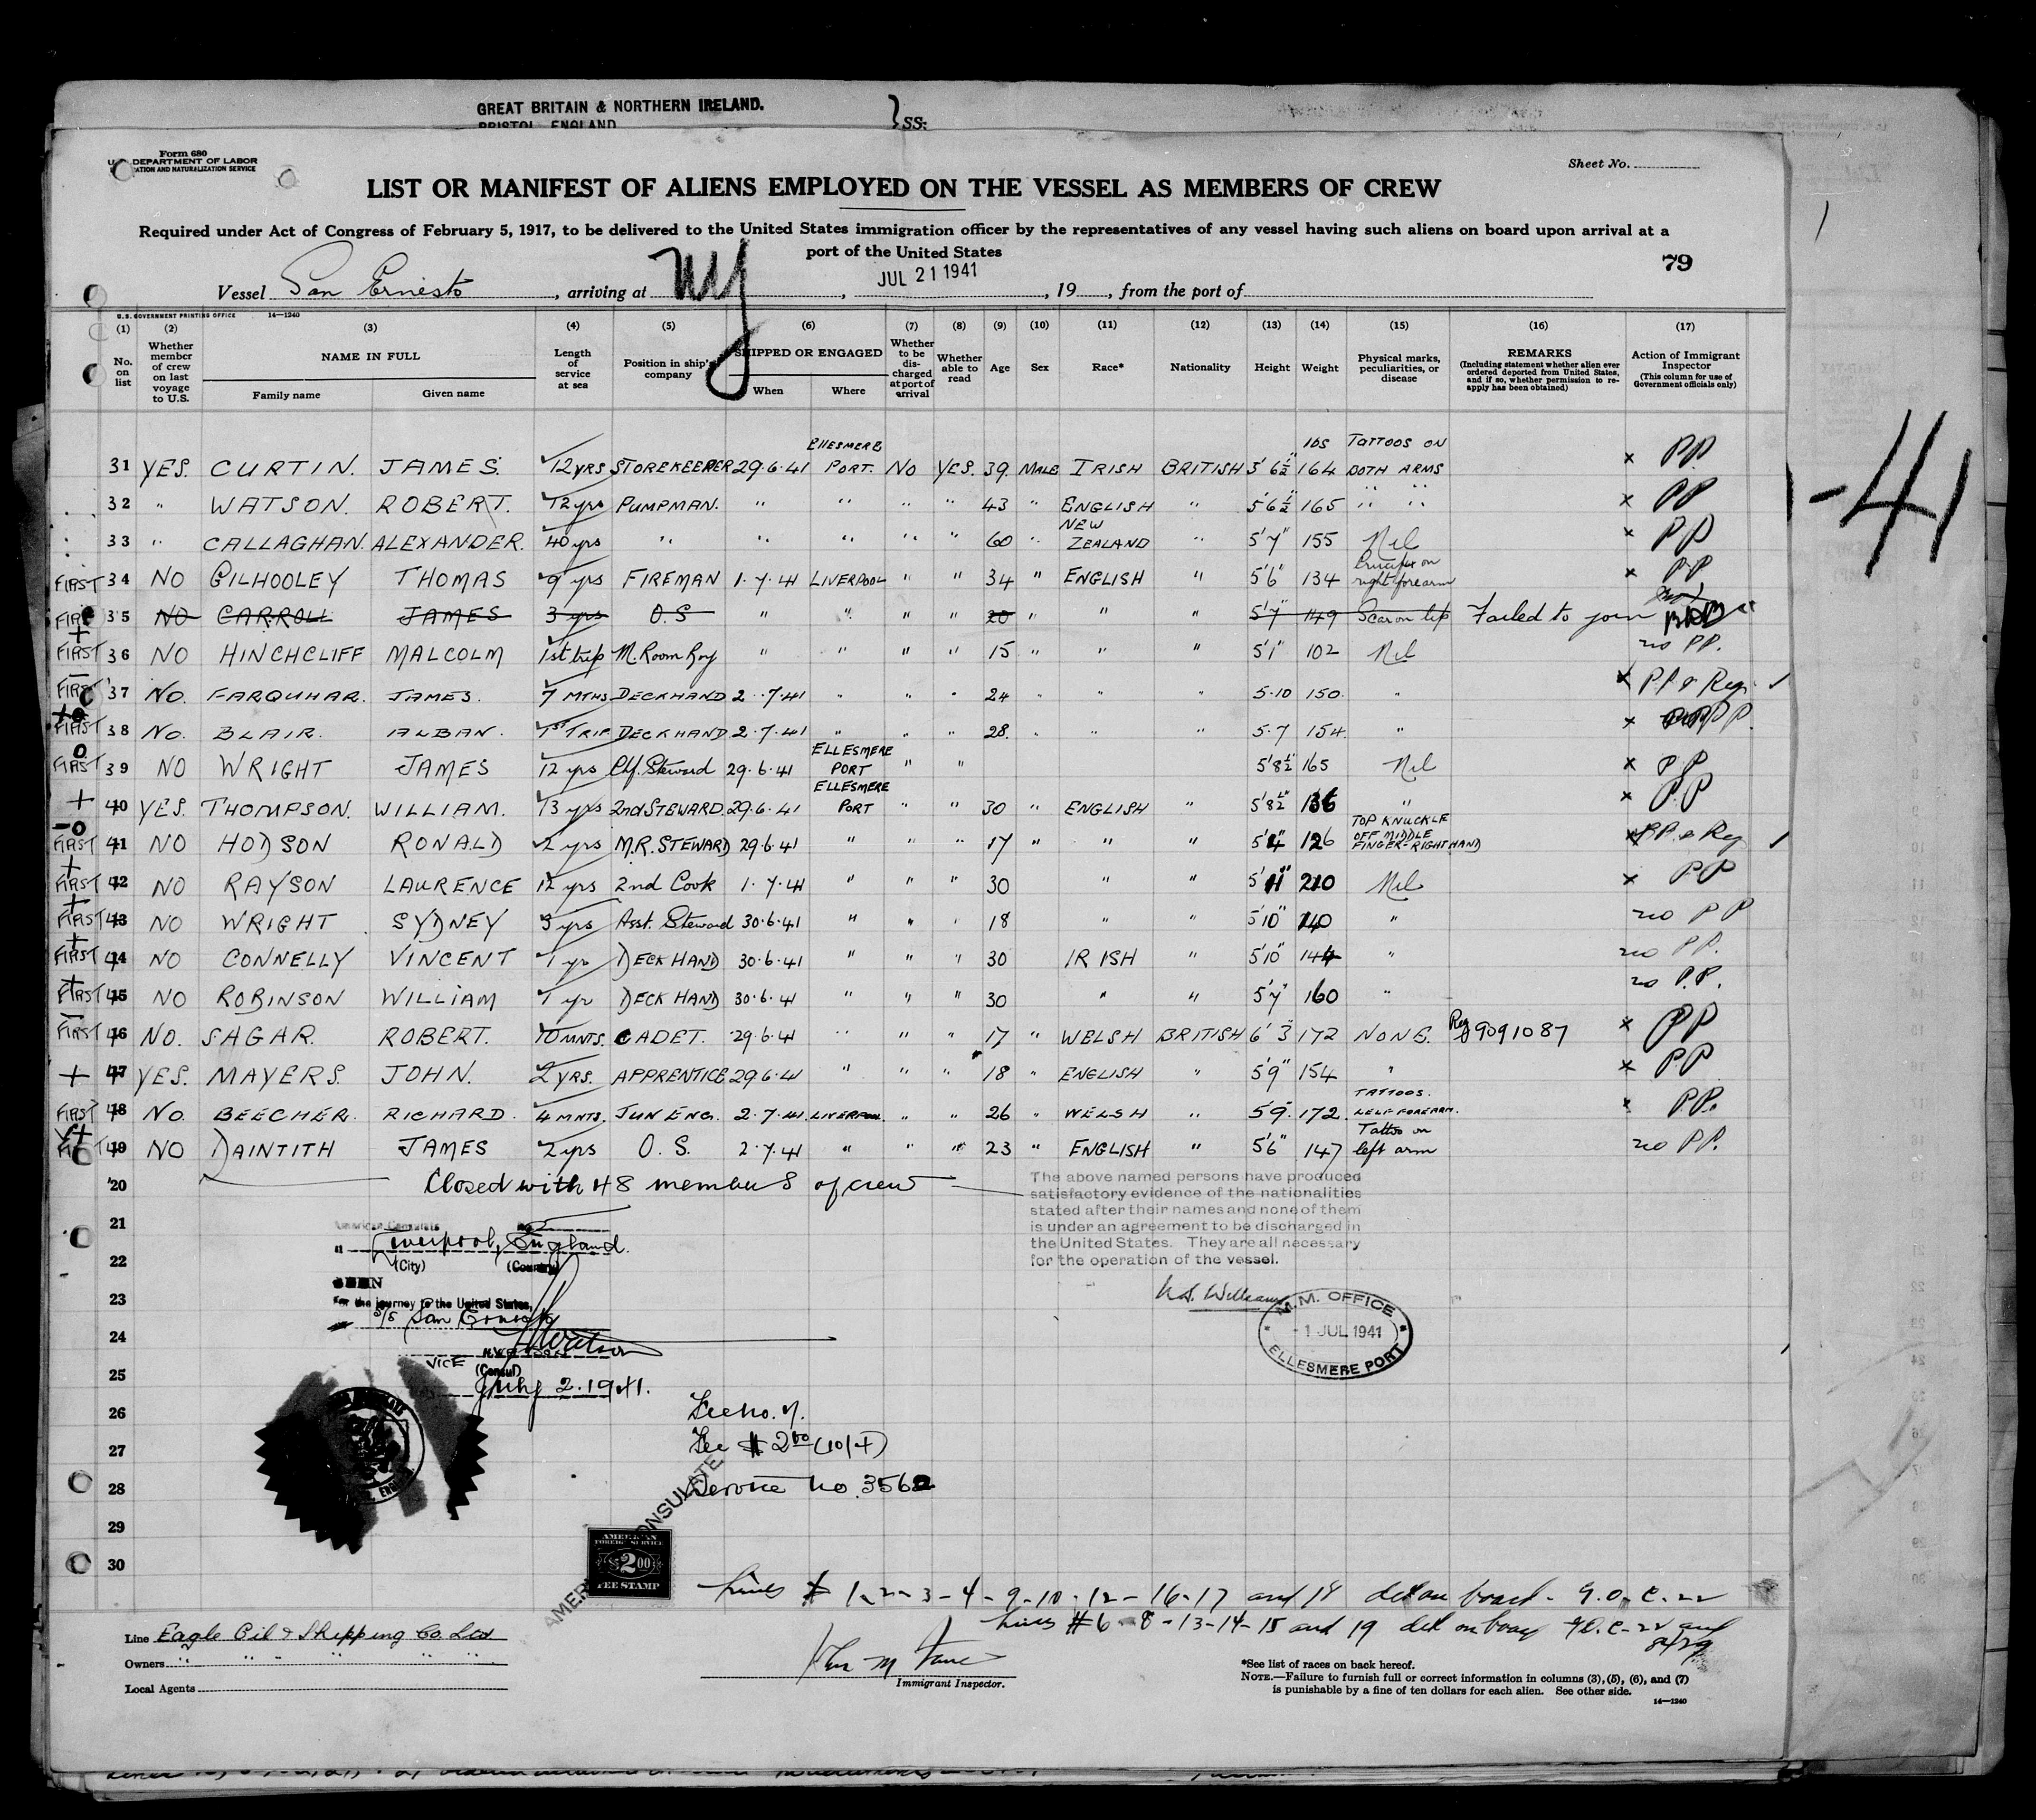 GREAT BRITAIN & NORTHERN IRELAND.
BRISTOL, ENGLAND } SS:
Form 680
U. S. DEPARTMENT OF LABOR
ATION AND NATURALIZATION SERVICE
Sheet No.
LIST OR MANIFEST OF ALIENS EMPLOYED ON THE VESSEL AS MEMBERS OF CREW
Required under Act of Congress of February 5, 1917, to be delivered to the United States immigration officer by the representatives of any vessel having such aliens on board upon arrival at a
port of the United States
79
Vessel San Ernesto, arriving at NY, JUL 21 1941, 19, from the port of
-41
U. S. GOVERNMENT PRINTING OFFICE 14-1240
(1) (2) (3) (4) (5) (6) (7) (8) (9) (10) (11) (12) (13) (14) (15) (16) (17)
No. on list
Whether member of crew on last voyage to U.S.
NAME IN FULL
Family name Given name
Length of service at sea
Position in ship's company
SHIPPED OR ENGAGED
When Where
Whether to be discharged at port of arrival
Whether able to read
Age
Sex
Race*
Nationality
Height
Weight
Physical marks, peculiarities, or disease
REMARKS
(Including statement whether alien ever ordered deported from United States, and if so, whether permission to re-apply has been obtained)
Action of Immigrant Inspector
(This column for use of Government officials only)
31 YES. CURTIN. JAMES. 12 YRS STOREKEEPER 29.6.41 ELLESMERE PORT. NO YES. 39 MALE IRISH BRITISH 5' 6½" 164 lbs TATTOOS ON BOTH ARMS x P.P.
32 " WATSON. ROBERT. 12 yrs PUMPMAN. " " " " 43 " ENGLISH " 5'6½" 165 " " x PP
33 " CALLAGHAN. ALEXANDER. 40 yrs " " " " " 60 " NEW ZEALAND " 5'7" 155 Nil x PP
FIRST 34 NO GILHOOLEY THOMAS 9 yrs FIREMAN 1.7.41 LIVERPOOL " " 34 " ENGLISH " 5'6" 134 Crucifix on right forearm x PP
FIRST 35 NO CARROLL JAMES 3 yrs O.S " " " " 20 " " " 5'7" 149 Scar on lip Failed to join
FIRST 36 NO HINCHCLIFF MALCOLM 1st trip M. Room Boy " " " " 15 " " " 5'1" 102 Nil no PP.
FIRST 37 NO. FARQUHAR. JAMES. 7 MTHS DECKHAND 2.7.41 " " " 24 " " " 5.10 150. " x P.P. & Reg ✓
FIRST 38 NO. BLAIR. ALBAN. 1ST TRIP DECKHAND 2.7.41 " " " 28. " " " 5.7 154. " x PP.
FIRST 39 NO WRIGHT JAMES 12 yrs Chf. Steward 29.6.41 ELLESMERE PORT " " 5'8½" 165 Nil x P.P
40 YES. THOMPSON. WILLIAM. 13 yrs 2nd STEWARD. 29.6.41 ELLESMERE PORT " " 30 " ENGLISH " 5'8½" 136 " x P.P
FIRST 41 NO HODSON RONALD 2 yrs M.R. STEWARD 29.6.41 " " " 17 " " " 5'4" 126 TOP KNUCKLE OFF MIDDLE FINGER-RIGHT HAND x P.P. & Reg ✓
FIRST 42 NO RAYSON LAURENCE 12 yrs 2nd Cook 1.7.41 " " " 30 " " 5'11" 210 Nil x PP
FIRST 43 NO WRIGHT SYDNEY 3 yrs Asst. Steward 30.6.41 " " " 18 " " 5'10" 140 " no PP
FIRST 44 NO CONNELLY VINCENT 1 yr DECK HAND 30.6.41 " " " 30 IRISH " 5'10" 144 " no PP.
FIRST 45 NO ROBINSON WILLIAM 1 yr DECK HAND 30.6.41 " " " 30 " " 5'7" 160 " no P.P.
FIRST 46 NO. SAGAR. ROBERT. 10 MNTS. CADET. 29.6.41 " " " 17 " WELSH BRITISH 6' 3" 172 NONE. Reg 9091087 x PP
47 YES. MAYERS. JOHN. 2 YRS. APPRENTICE 29.6.41 " " " 18 " ENGLISH " 5'9" 154 " x PP
FIRST 48 NO. BEECHER. RICHARD. 4 MNTS. JUN ENG. 2.7.41. LIVERPOOL. " " 26 " WELSH " 5 9. 172. TATTOOS. LEFT FOREARM. x P.P.
FIRST 49 NO DAINTITH JAMES 2 yrs O.S. 2.7.41 " " " 23 " ENGLISH " 5'6" 147 Tattoo on left arm no PP.
20 Closed with 48 members of crew
The above named persons have produced
satisfactory evidence of the nationalities
stated after their names and none of them
is under an agreement to be discharged in
the United States. They are all necessary
for the operation of the vessel.
21 American Consulate
Liverpool, England.
22 (City) (Country)
SEEN
23 For the journey to the United States,
S/S San Ernesto
24 Watson
VICE (Consul)
25 July 2. 1941.
M.M. OFFICE
1 JUL 1941
ELLESMERE PORT
26 Fee no. 7.
27 Fee $ 2.00 (10/4)
28 Service no. 3562
29
30
AMERICAN CONSULATE
AMERICAN
FOREIGN SERVICE
$2.00
FEE STAMP
Lines # 1-2-3-4-9-10-12-16-17 and 18 det on board - G.O. C-22
Lines #6-8-13-14-15 and 19 det on board G.O. C-22 and
Line Eagle Oil & Shipping Co Ltd
Owners " " " " "
Local Agents
Immigrant Inspector.
*See list of races on back hereof.
NOTE.—Failure to furnish full or correct information in columns (3), (5), (6), and (7)
is punishable by a fine of ten dollars for each alien. See other side.
14-1240